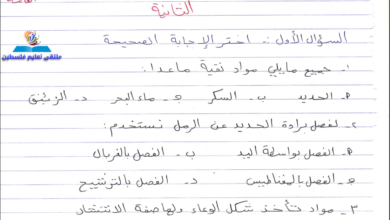 الثانية
ملتقى تعليم فلسطين
السؤال الأول :- اختر الإجابة الصحيحة
١- جميع مايلي مواد نقية ماعدا:
أ- الحديد ب- السكر ج- ماء البحر د- الزئبق
٢- لفصل برادة الحديد عن الرمل نستخدم:
أ- الفصل بواسطة اليد ب- الفصل بالغربال
ج- الفصل بالمغناطيس د- الفصل بالترشيح
٣- مواد تأخذ شكل الوعاء ولها صفة الانتشار